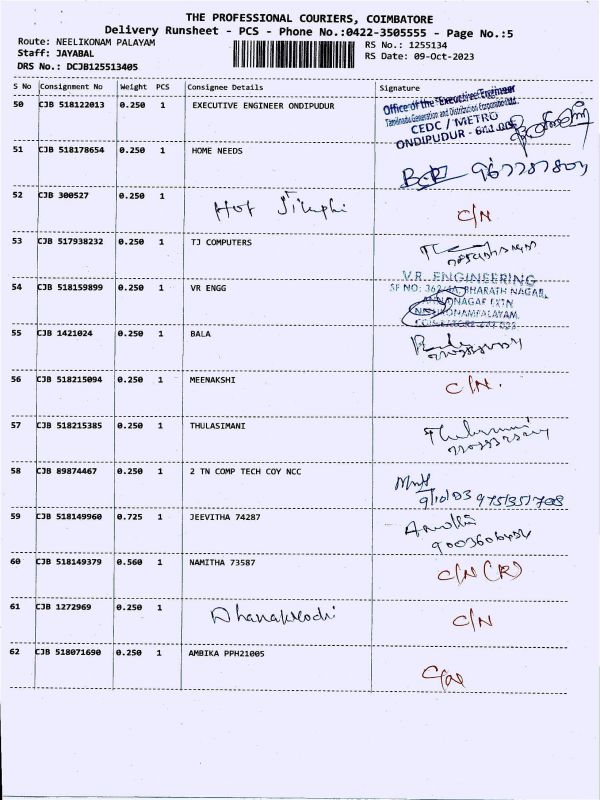 THE PROFESSIONAL COURIERS, COIMBATORE
Delivery Runsheet - PCS - Phone No.:0422-3505555 - Page No.:5
Route: NEELIKONAM PALAYAM
RS No.: 1255134
Staff: JAYABAL
RS Date: 09-Oct-2023
DRS No.: DCJB125513405
S No Consignment No Weight PCS Consignee Details Signature
50 CJB 518122013 0.250 1 EXECUTIVE ENGINEER ONDIPUDUR
Office of the Executive Engineer
Tamilnadu Generation and Distribution Corporation Ltd.
CEDC / METRO
ONDIPUDUR - 641 016
51 CJB 518178654 0.250 1 HOME NEEDS
52 CJB 300527 0.250 1 C/N
53 CJB 517938232 0.250 1 TJ COMPUTERS
54 CJB 518159899 0.250 1 VR ENGG
V.R. ENGINEERING
SF NO: BHARATH NAGAR,
ANNA NAGAR EXTN
55 CJB 1421024 0.250 1 BALA
56 CJB 518215094 0.250 1 MEENAKSHI C/N.
57 CJB 518215385 0.250 1 THULASIMANI
58 CJB 89874467 0.250 1 2 TN COMP TECH COY NCC
59 CJB 518149960 0.725 1 JEEVITHA 74287
60 CJB 518149379 0.560 1 NAMITHA 73587 C/N (R)
61 CJB 1272969 0.250 1 C/N
62 CJB 518071690 0.250 1 AMBIKA PPH21005 C/N